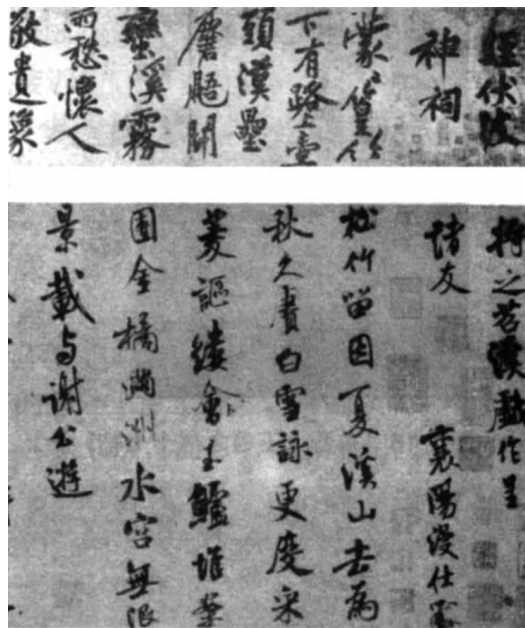 經伏波
神祠
濛〻篁竹
下有路上壺
頭漢壘
麏鼯鬭
蠻溪霧
雨愁懷人
敬遺像
將之苕溪戲作呈
諸友 襄陽漫仕黻
松竹留因夏溪山去為
秋久賡白雪詠更度采
菱謳縷會玉鱸堆案
團金橘滿洲水宮無限
景載与謝公遊